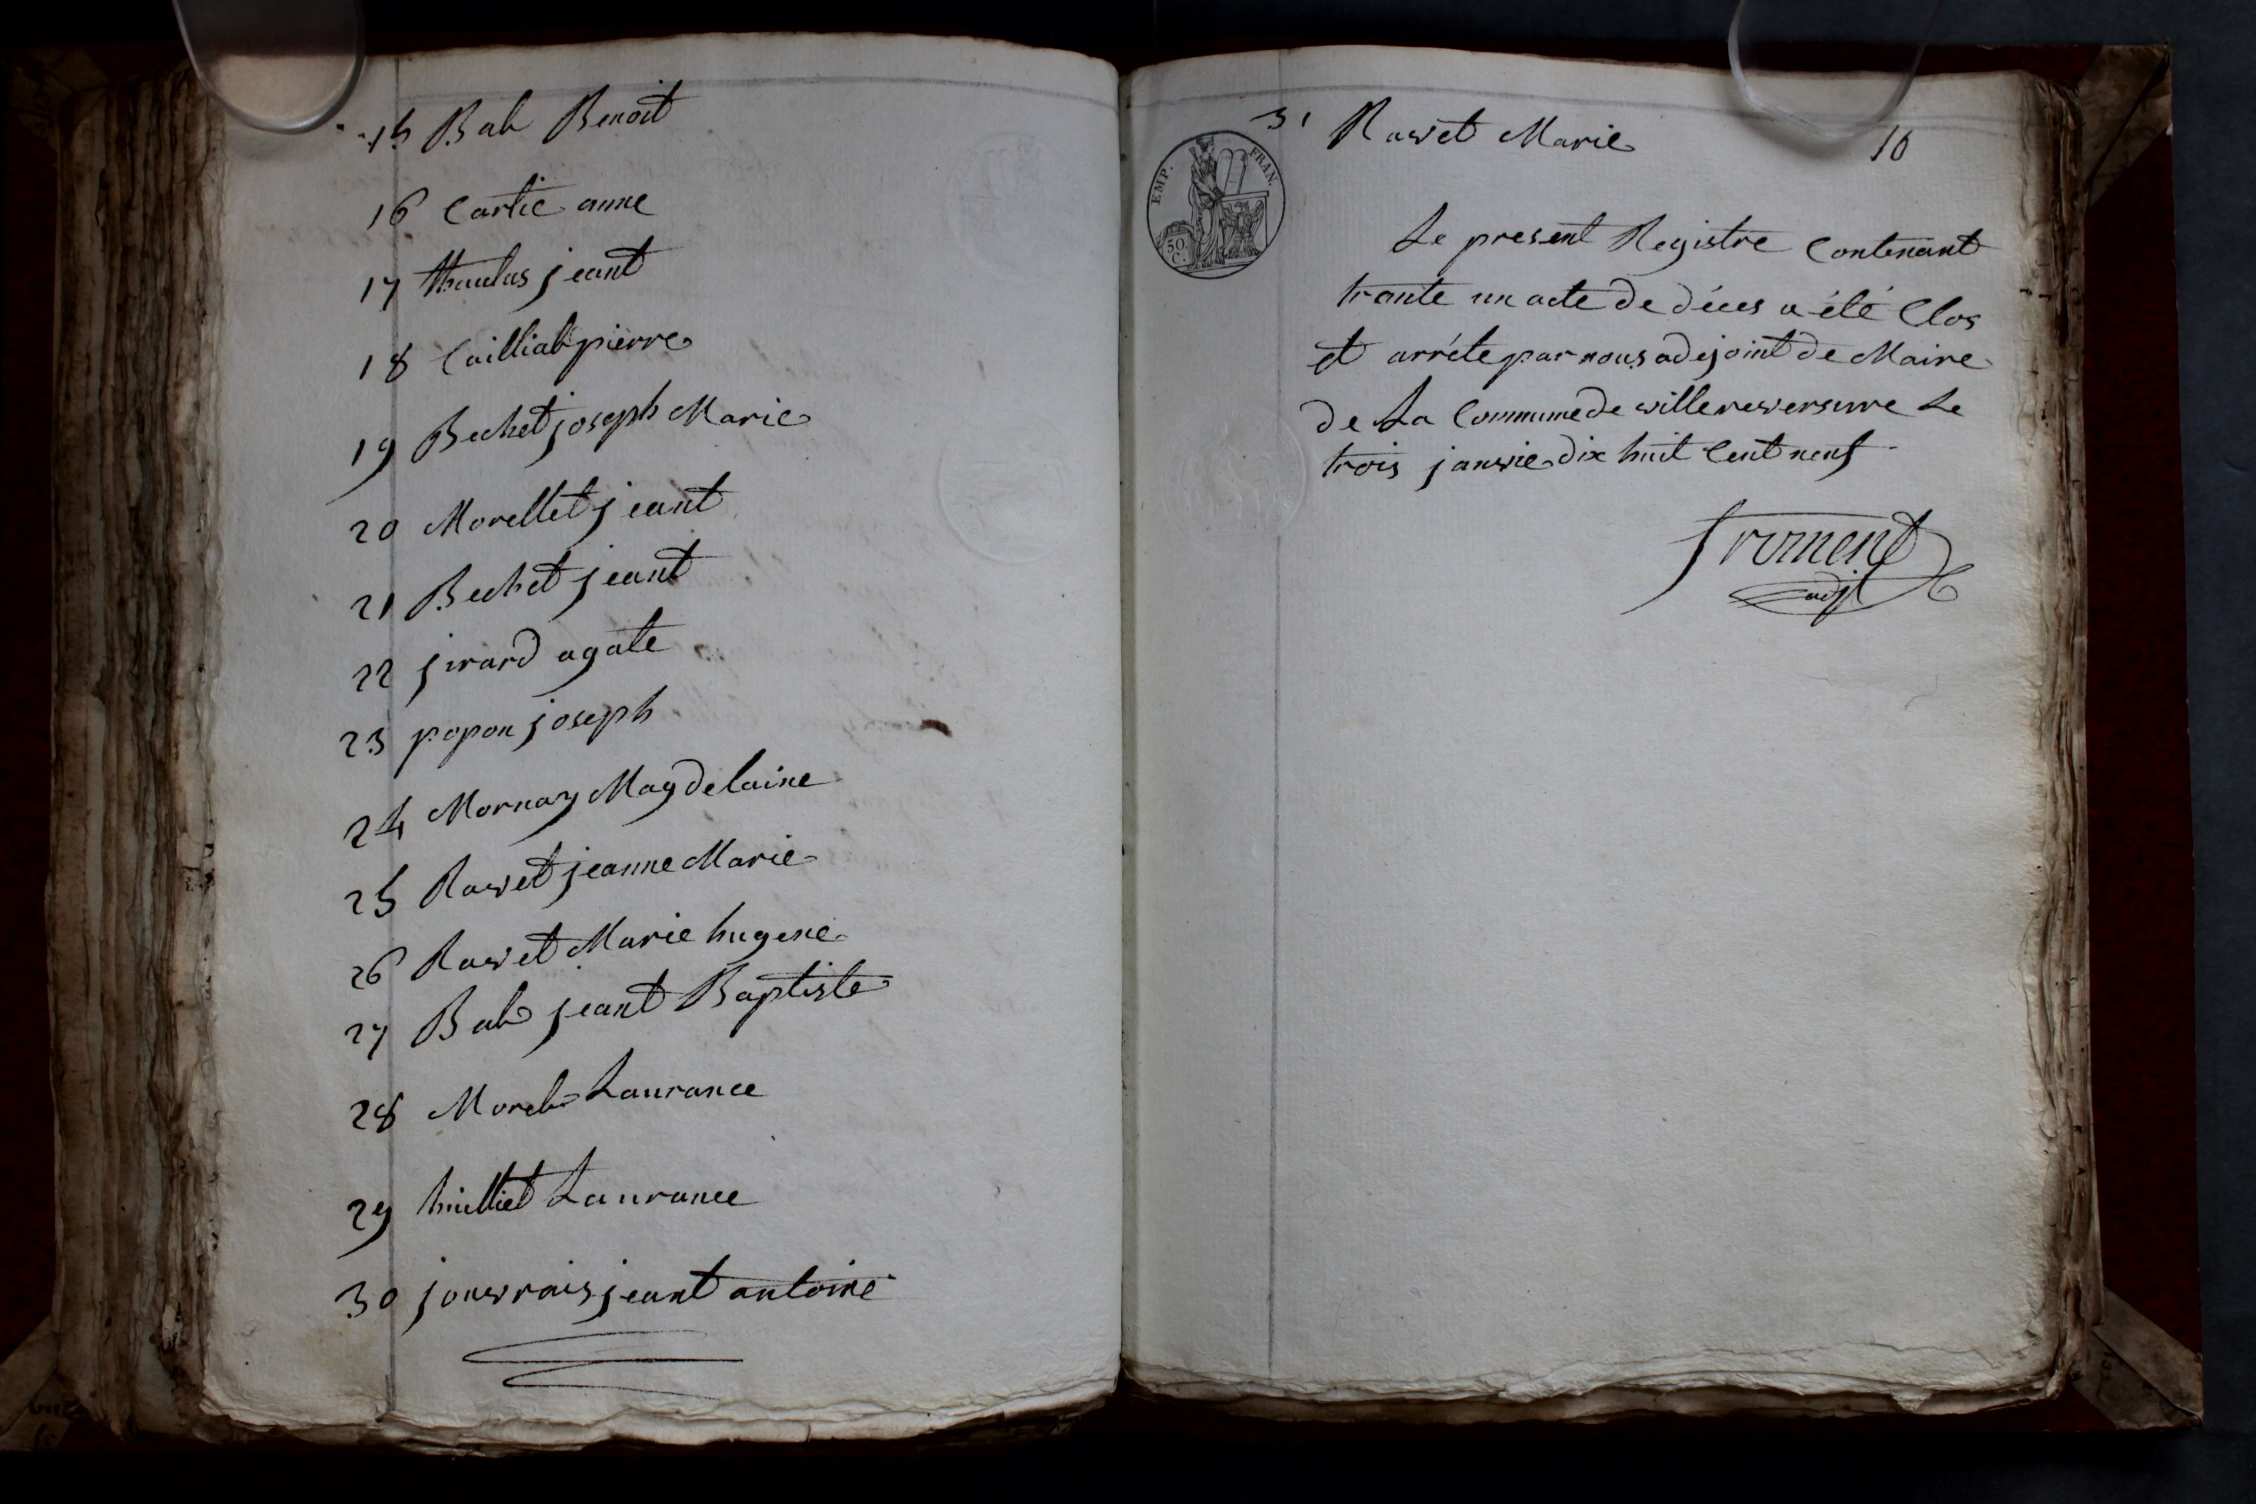 15 Bal Benoit
16 Cartie anne
17 thaulas jeant
18 Cailliat pierre
19 Bechet joseph Marie
20 Morellet jeant
21 Bechet jeant
22 jirard agate
23 popon joseph
24 Mornay Magdelaine
25 Ravet jeanne Marie
26 Ravet Marie hugene
27 Bal jeant Baptiste
28 Morel Laurance
29 huilliet Laurance
30 jouvrais jeant antoine
31 Ravet Marie
10
EMP. FRAN.
50
C.
Le present Registre Contenant
trante un acte de déces a été Clos
et arréte par nous adejoint de Maire
de La Commune de villereversure Le
trois janvie dix huit Cent neuf
froment
adjt